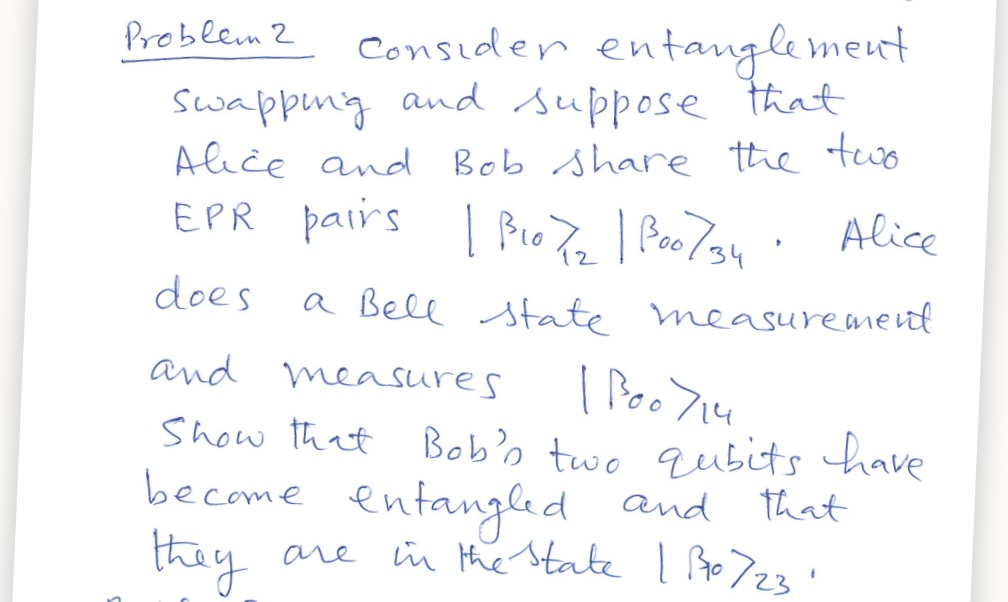 Problem 2 Consider entanglement
swapping and suppose that
Alice and Bob share the two
EPR pairs |β10⟩12 |β00⟩34 . Alice
does a Bell state measurement
and measures |β00⟩14
Show that Bob's two qubits have
become entangled and that
they are in the state |β10⟩23 .